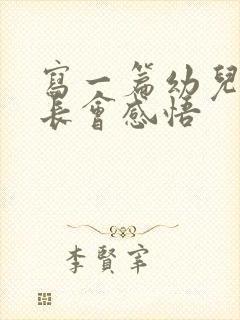 寫一篇幼兒
長會感悟
李賢宰